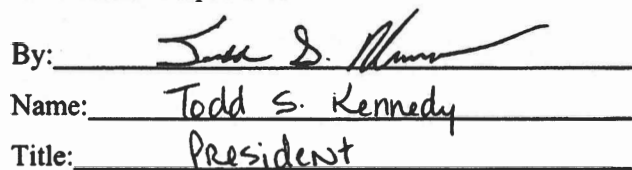 By: Todd S.
Name: Todd S. Kennedy
Title: President